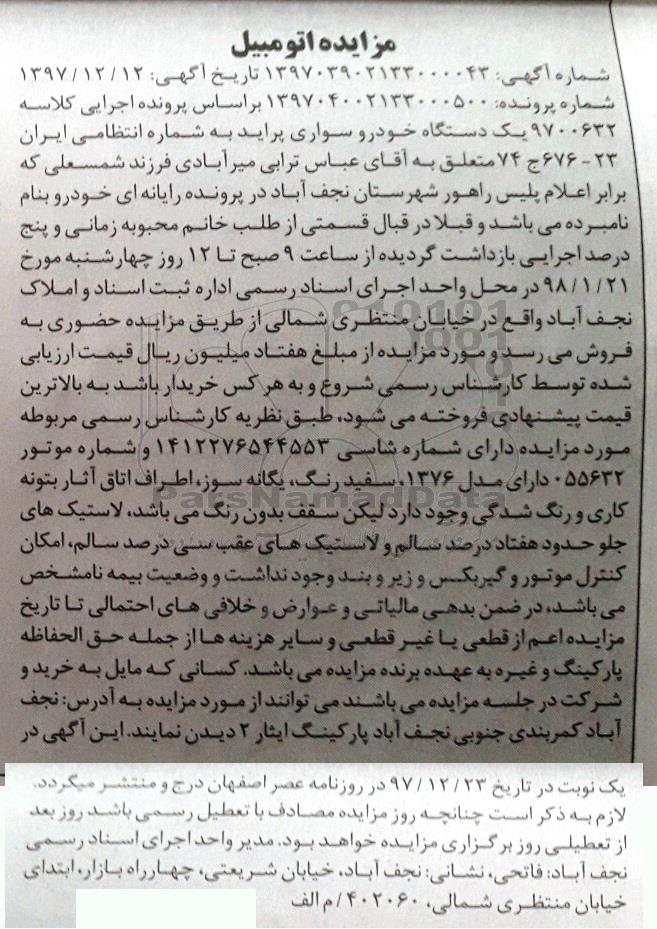 مزایده اتومبیل
شماره آگهی: ۱۳۹۷۰۳۹۰۲۱۳۳۰۰۰۰۴۳ تاریخ آگهی: ۱۳۹۷/۱۲/۱۲
شماره پرونده: ۱۳۹۷۰۴۰۰۲۱۳۳۰۰۰۵۰۰ براساس پرونده اجرایی کلاسه
۹۷۰۰۶۳۲ یک دستگاه خودرو سواری پراید به شماره انتظامی ایران
۲۳-۶۷۶ج ۷۴ متعلق به آقای عباس ترابی میرآبادی فرزند شمسعلی که
برابر اعلام پلیس راهور شهرستان نجف آباد در پرونده رایانه ای خودرو بنام
نامبرده می باشد و قبلا در قبال قسمتی از طلب خانم محبوبه زمانی و پنج
درصد اجرایی بازداشت گردیده از ساعت ۹ صبح تا ۱۲ روز چهارشنبه مورخ
۹۸/۱/۲۱ در محل واحد اجرای اسناد رسمی اداره ثبت اسناد و املاک
نجف آباد واقع در خیابان منتظری شمالی از طریق مزایده حضوری به
فروش می رسد و مورد مزایده از مبلغ هفتاد میلیون ریال قیمت ارزیابی
شده توسط کارشناس رسمی شروع و به هر کس خریدار باشد به بالاترین
قیمت پیشنهادی فروخته می شود، طبق نظریه کارشناس رسمی مربوطه
مورد مزایده دارای شماره شاسی ۱۴۱۲۲۷۶۵۴۴۵۵۳ و شماره موتور
۰۵۵۶۳۲ دارای مدل ۱۳۷۶، سفید رنگ، یگانه سوز، اطراف اتاق آثار بتونه
کاری و رنگ شدگی وجود دارد لیکن سقف بدون رنگ می باشد، لاستیک های
جلو حدود هفتاد درصد سالم و لاستیک های عقب سی درصد سالم، امکان
کنترل موتور و گیربکس و زیر و بند وجود نداشت و وضعیت بیمه نامشخص
می باشد، در ضمن بدهی مالیاتی و عوارض و خلافی های احتمالی تا تاریخ
مزایده اعم از قطعی یا غیر قطعی و سایر هزینه ها از جمله حق الحفاظه
پارکینگ و غیره به عهده برنده مزایده می باشد. کسانی که مایل به خرید و
شرکت در جلسه مزایده می باشند می توانند از مورد مزایده به آدرس: نجف
آباد کمربندی جنوبی نجف آباد پارکینگ ایثار ۲ دیدن نمایند. این آگهی در
یک نوبت در تاریخ ۹۷/۱۲/۲۳ در روزنامه عصر اصفهان درج و منتشر میگردد.
لازم به ذکر است چنانچه روز مزایده مصادف با تعطیل رسمی باشد روز بعد
از تعطیلی روز برگزاری مزایده خواهد بود. مدیر واحد اجرای اسناد رسمی
نجف آباد: فاتحی، نشانی: نجف آباد، خیابان شریعتی، چهارراه بازار، ابتدای
خیابان منتظری شمالی، ۴۰۲۰۶۰/م الف
ParsNamadData